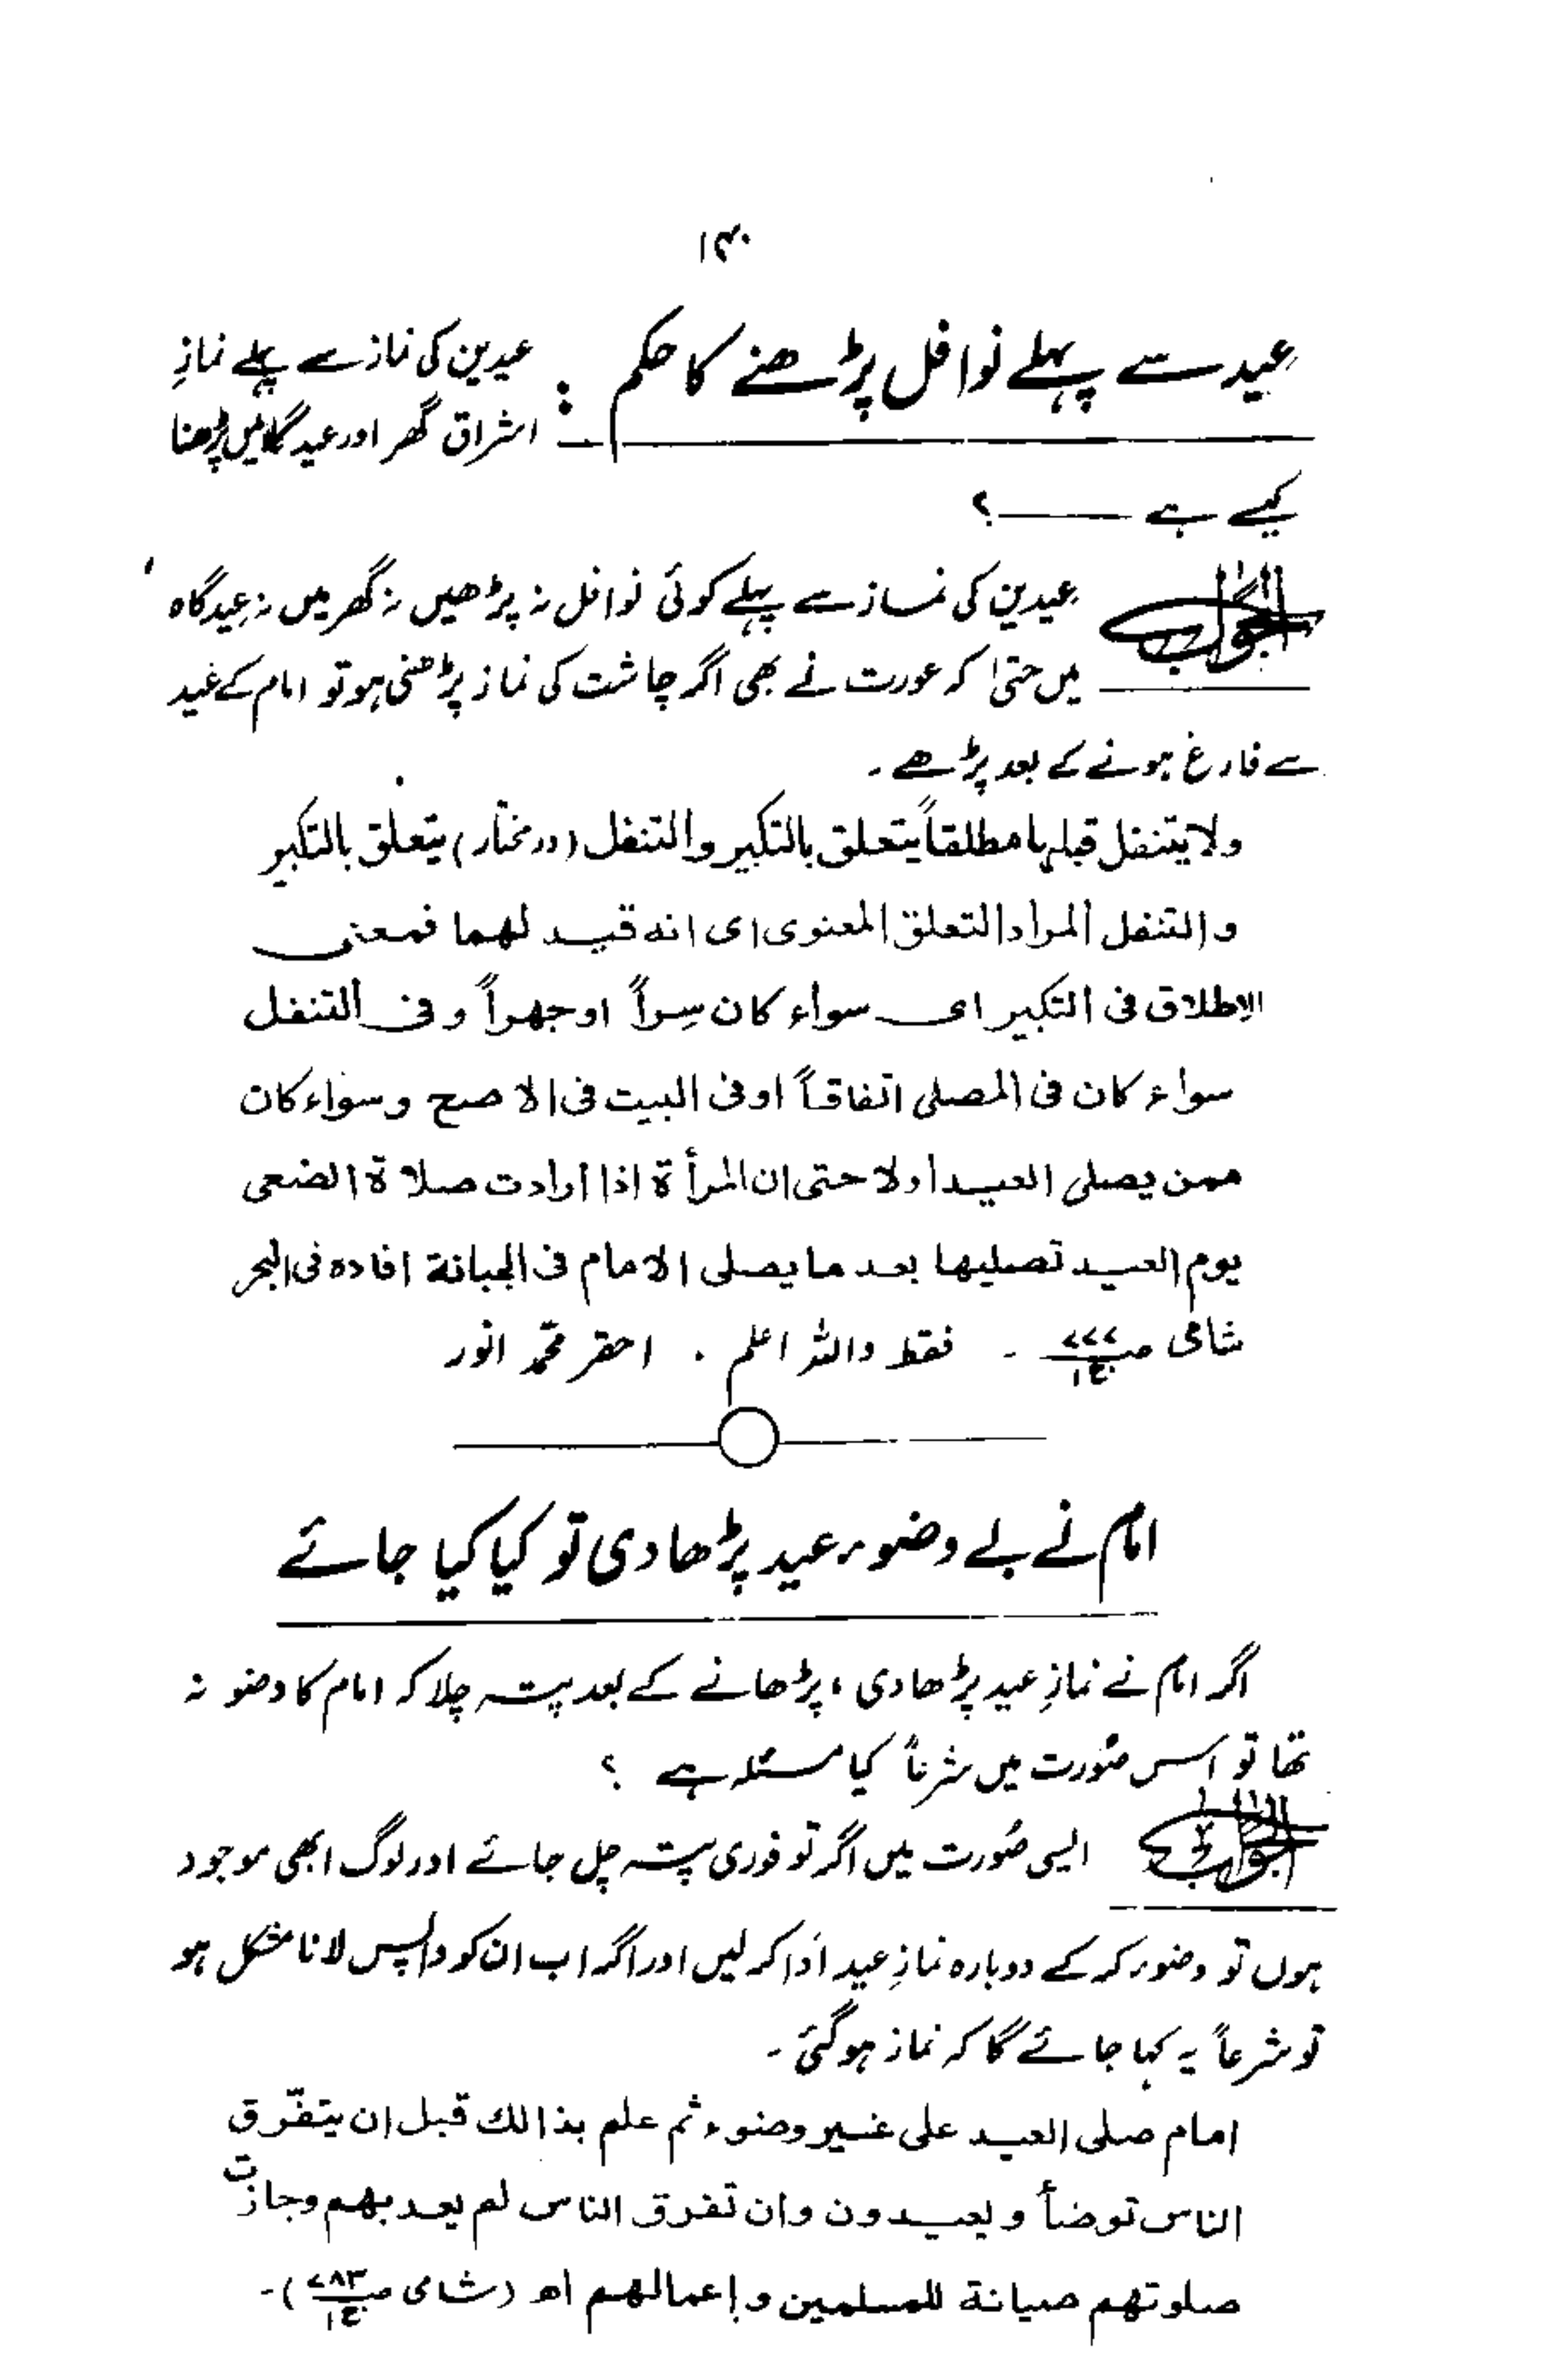 ۱۴۰
عید سے پہلے نوافل پڑھنے کا حکم : عیدین کی نماز سے پہلے نمازِ
اشراق گھر اور عید گاہ میں پڑھنا
کیسے ہے ——— ؟
الجواب عیدین کی نماز سے پہلے کوئی نوافل نہ پڑھیں نہ گھر میں نہ عیدگاہ
میں حتیٰ کہ عورت نے بھی اگر چاشت کی نماز پڑھنی ہو تو امام کے عید
سے فارغ ہونے کے بعد پڑھے ۔
ولا یتنفل قبلہا مطلقاً یتعلق بالتکبیر والتنفل (درمختار) یتعلق بالتکبیر
والتنفل المراد التعلق المعنوی ای انه قید لهما فمعنی
الاطلاق فی التکبیر ای سواء کان سِراً او جهراً وفی التنفل
سواء کان فی المصلی اتفاقاً او فی البیت فی الاصح وسواء کان
ممن یصلی العید او لا حتی ان المرأة اذا ارادت صلاة الضحی
یوم العید تصلیها بعد ما یصلی الامام فی الجبانة افاده فی البحر
شامی ص۷۷۷ ج۱ ۔ فقط واللہ اعلم ۔ احقر محمد انور
امام نے بے وضوء عید پڑھا دی تو کیا کیا جائے
اگر امام نے نمازِ عید پڑھا دی ، پڑھانے کے بعد پتہ چلا کہ امام کا وضو نہ
تھا تو اس صُورت میں شرعاً کیا مسئلہ ہے ؟
الجواب ایسی صُورت میں اگر تو فوری پتہ چل جائے اور لوگ ابھی موجود
ہوں تو وضوء کر کے دوبارہ نمازِ عید اَدا کر لیں اور اگر اب ان کو واپس لانا مشکل ہو
تو شرعاً یہ کہا جائے گا کہ نماز ہوگئی ۔
امام صلی العید علی غیر وضوء ثم علم بذالك قبل ان یتفّرق
الناس توضأ و یعیدون وان تفرق الناس لم یعد بهم وجازت
صلوتهم صیانة للمسلمین و إعمالهم اھ (شامی ص۷۸۳ ج۱) ۔